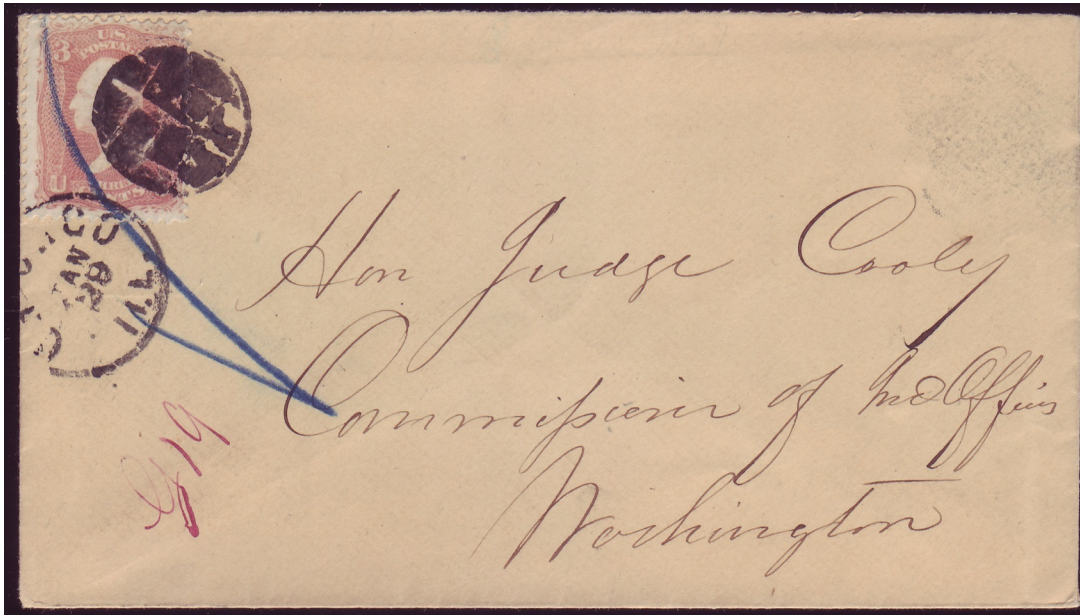 3
U.S.
POSTAGE
U
CHICAGO
JAN
29
ILL
Hon Judge Cooley
Commissioner of Ind Offices
Washington